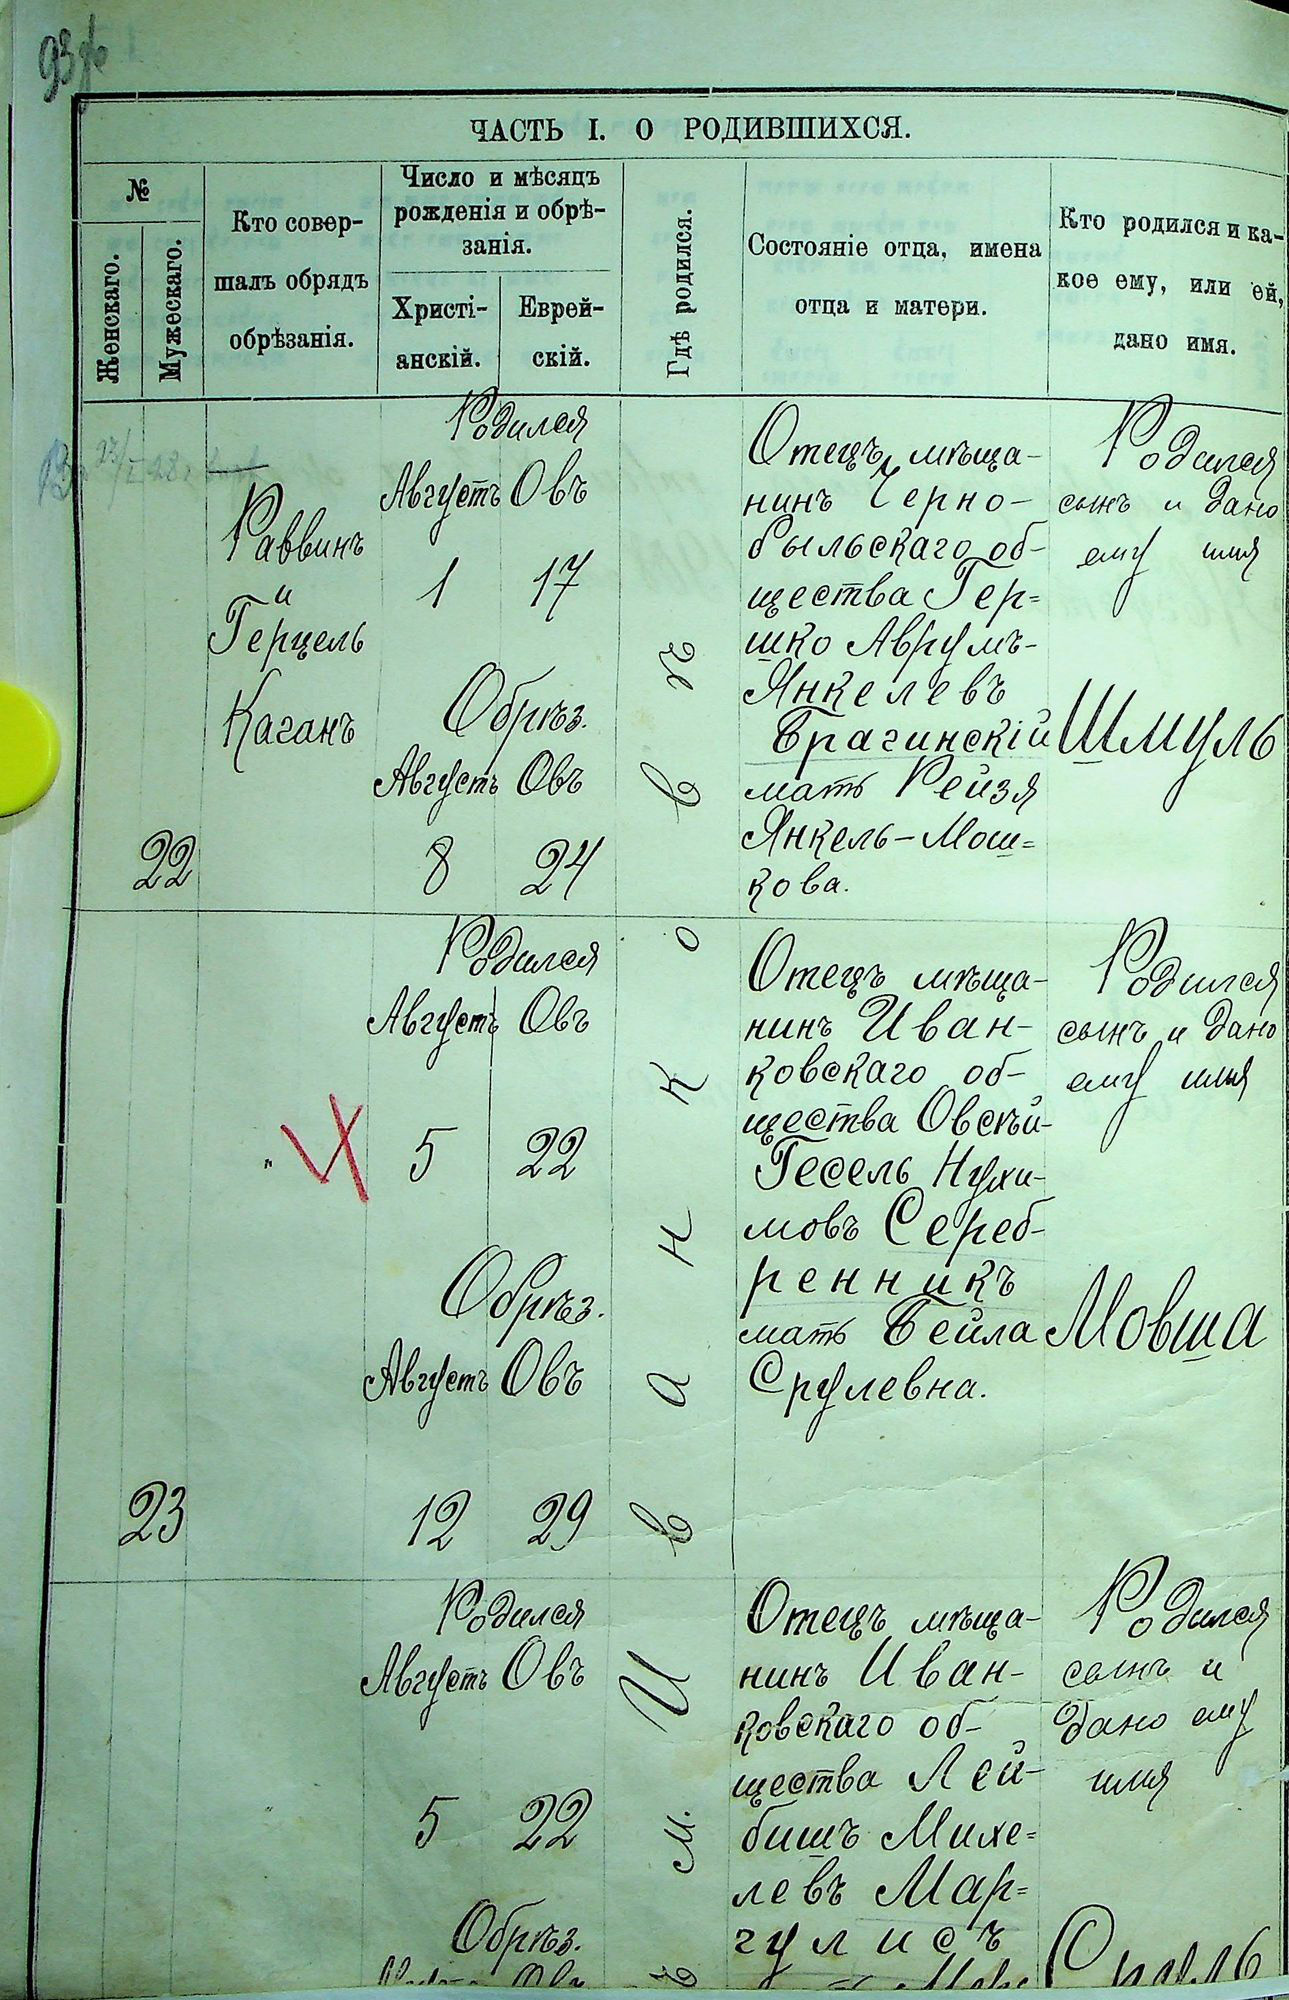 93
ЧАСТЬ I. О РОДИВШИХСЯ.
№
Женскаго.
Мужескаго.
Кто совер-
шалъ обрядъ
обрѣзанія.
Число и мѣсяцъ
рожденія и обрѣ-
занія.
Христі-
анскій.
Еврей-
скій.
Гдѣ родился.
Состояніе отца, имена
отца и матери.
Кто родился и ка-
кое ему, или ей,
дано имя.
22
Раввинъ
и
Герцель
Каганъ
Родился
Августъ Овъ
1 17
Обрѣз.
Августъ Овъ
8 24
Отецъ мѣща-
нинъ Черно-
быльскаго об-
щества Гер=
шко Аврумъ-
Янкелевъ
Брагинскій
мать Рейзя
Янкель-Мош=
кова.
Родился
сынъ и дано
ему имя
Шмуль
23
"
Родился
Августъ Овъ
5 22
Обрѣз.
Августъ Овъ
12 29
Отецъ мѣща-
нинъ Иван-
ковскаго об-
щества Овсѣй-
Гесель Нухи-
мовъ Сереб-
ренникъ
мать Бейла
Срулевна.
Родился
сынъ и дано
ему имя
Мовша
Родился
Августъ Овъ
5 22
Обрѣз.
Августъ Овъ
м. Иванковѣ
Отецъ мѣща-
нинъ Иван-
ковскаго об-
щества Лей-
бишъ Михе=
левъ Мар=
гулисъ
Родился
сынъ и
дано ему
имя
Сруль